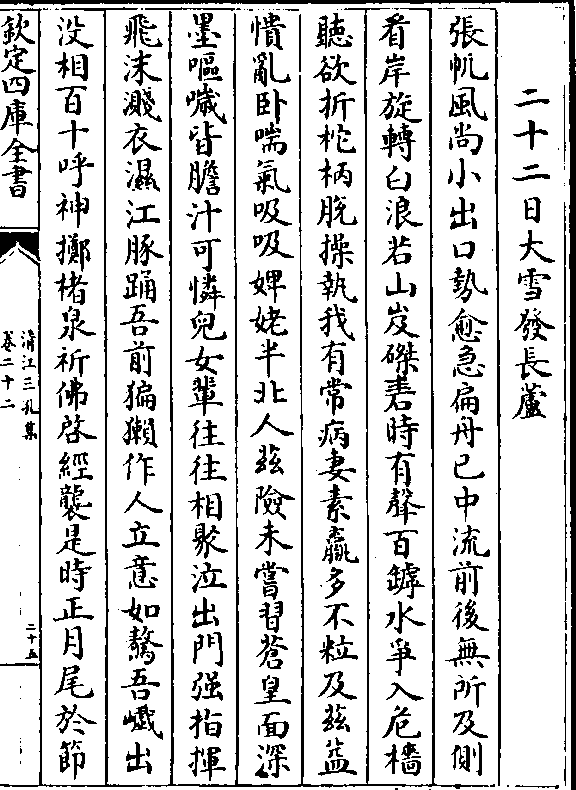 二十二日大雪發長蘆
張帆風尚小出口勢愈急扁舟已中流前後無所及側
看岸旋轉白浪若山岌磔砉時有聲百罅水爭入危檣
聽欲折柁柄脫操執我有常病妻素羸多不粒及茲益
憒亂卧喘氣吸吸婢姥半北人茲險未嘗習蒼皇面深
墨嘔噦皆膽汁可憐兒女輩往往相聚泣出門强指揮
飛沫濺衣濕江豚踊吾前猵獺作人立意如驁吾巇出
没相百十呼神擲楮泉祈佛啓經襲是時正月尾於節
欽定四庫全書
清江三孔集
卷二十二
二十五